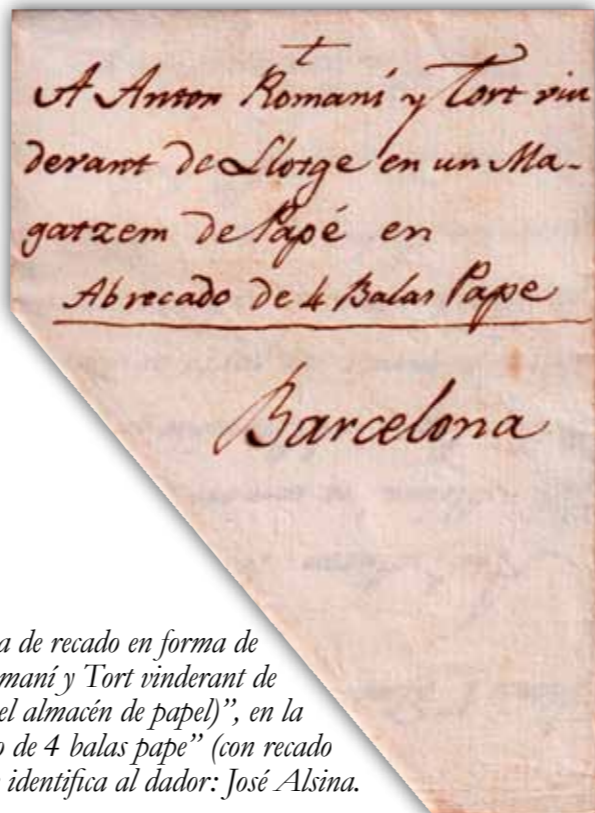 A Anton Romaní y Tort viu
derant de Llotge en un Ma-
gatzem de Papé en
Ab recado de 4 Balas Pape
Barcelona
a de recado en forma de
maní y Tort vinderant de
el almacén de papel)”, en la
o de 4 balas pape” (con recado
identifica al dador: José Alsina.